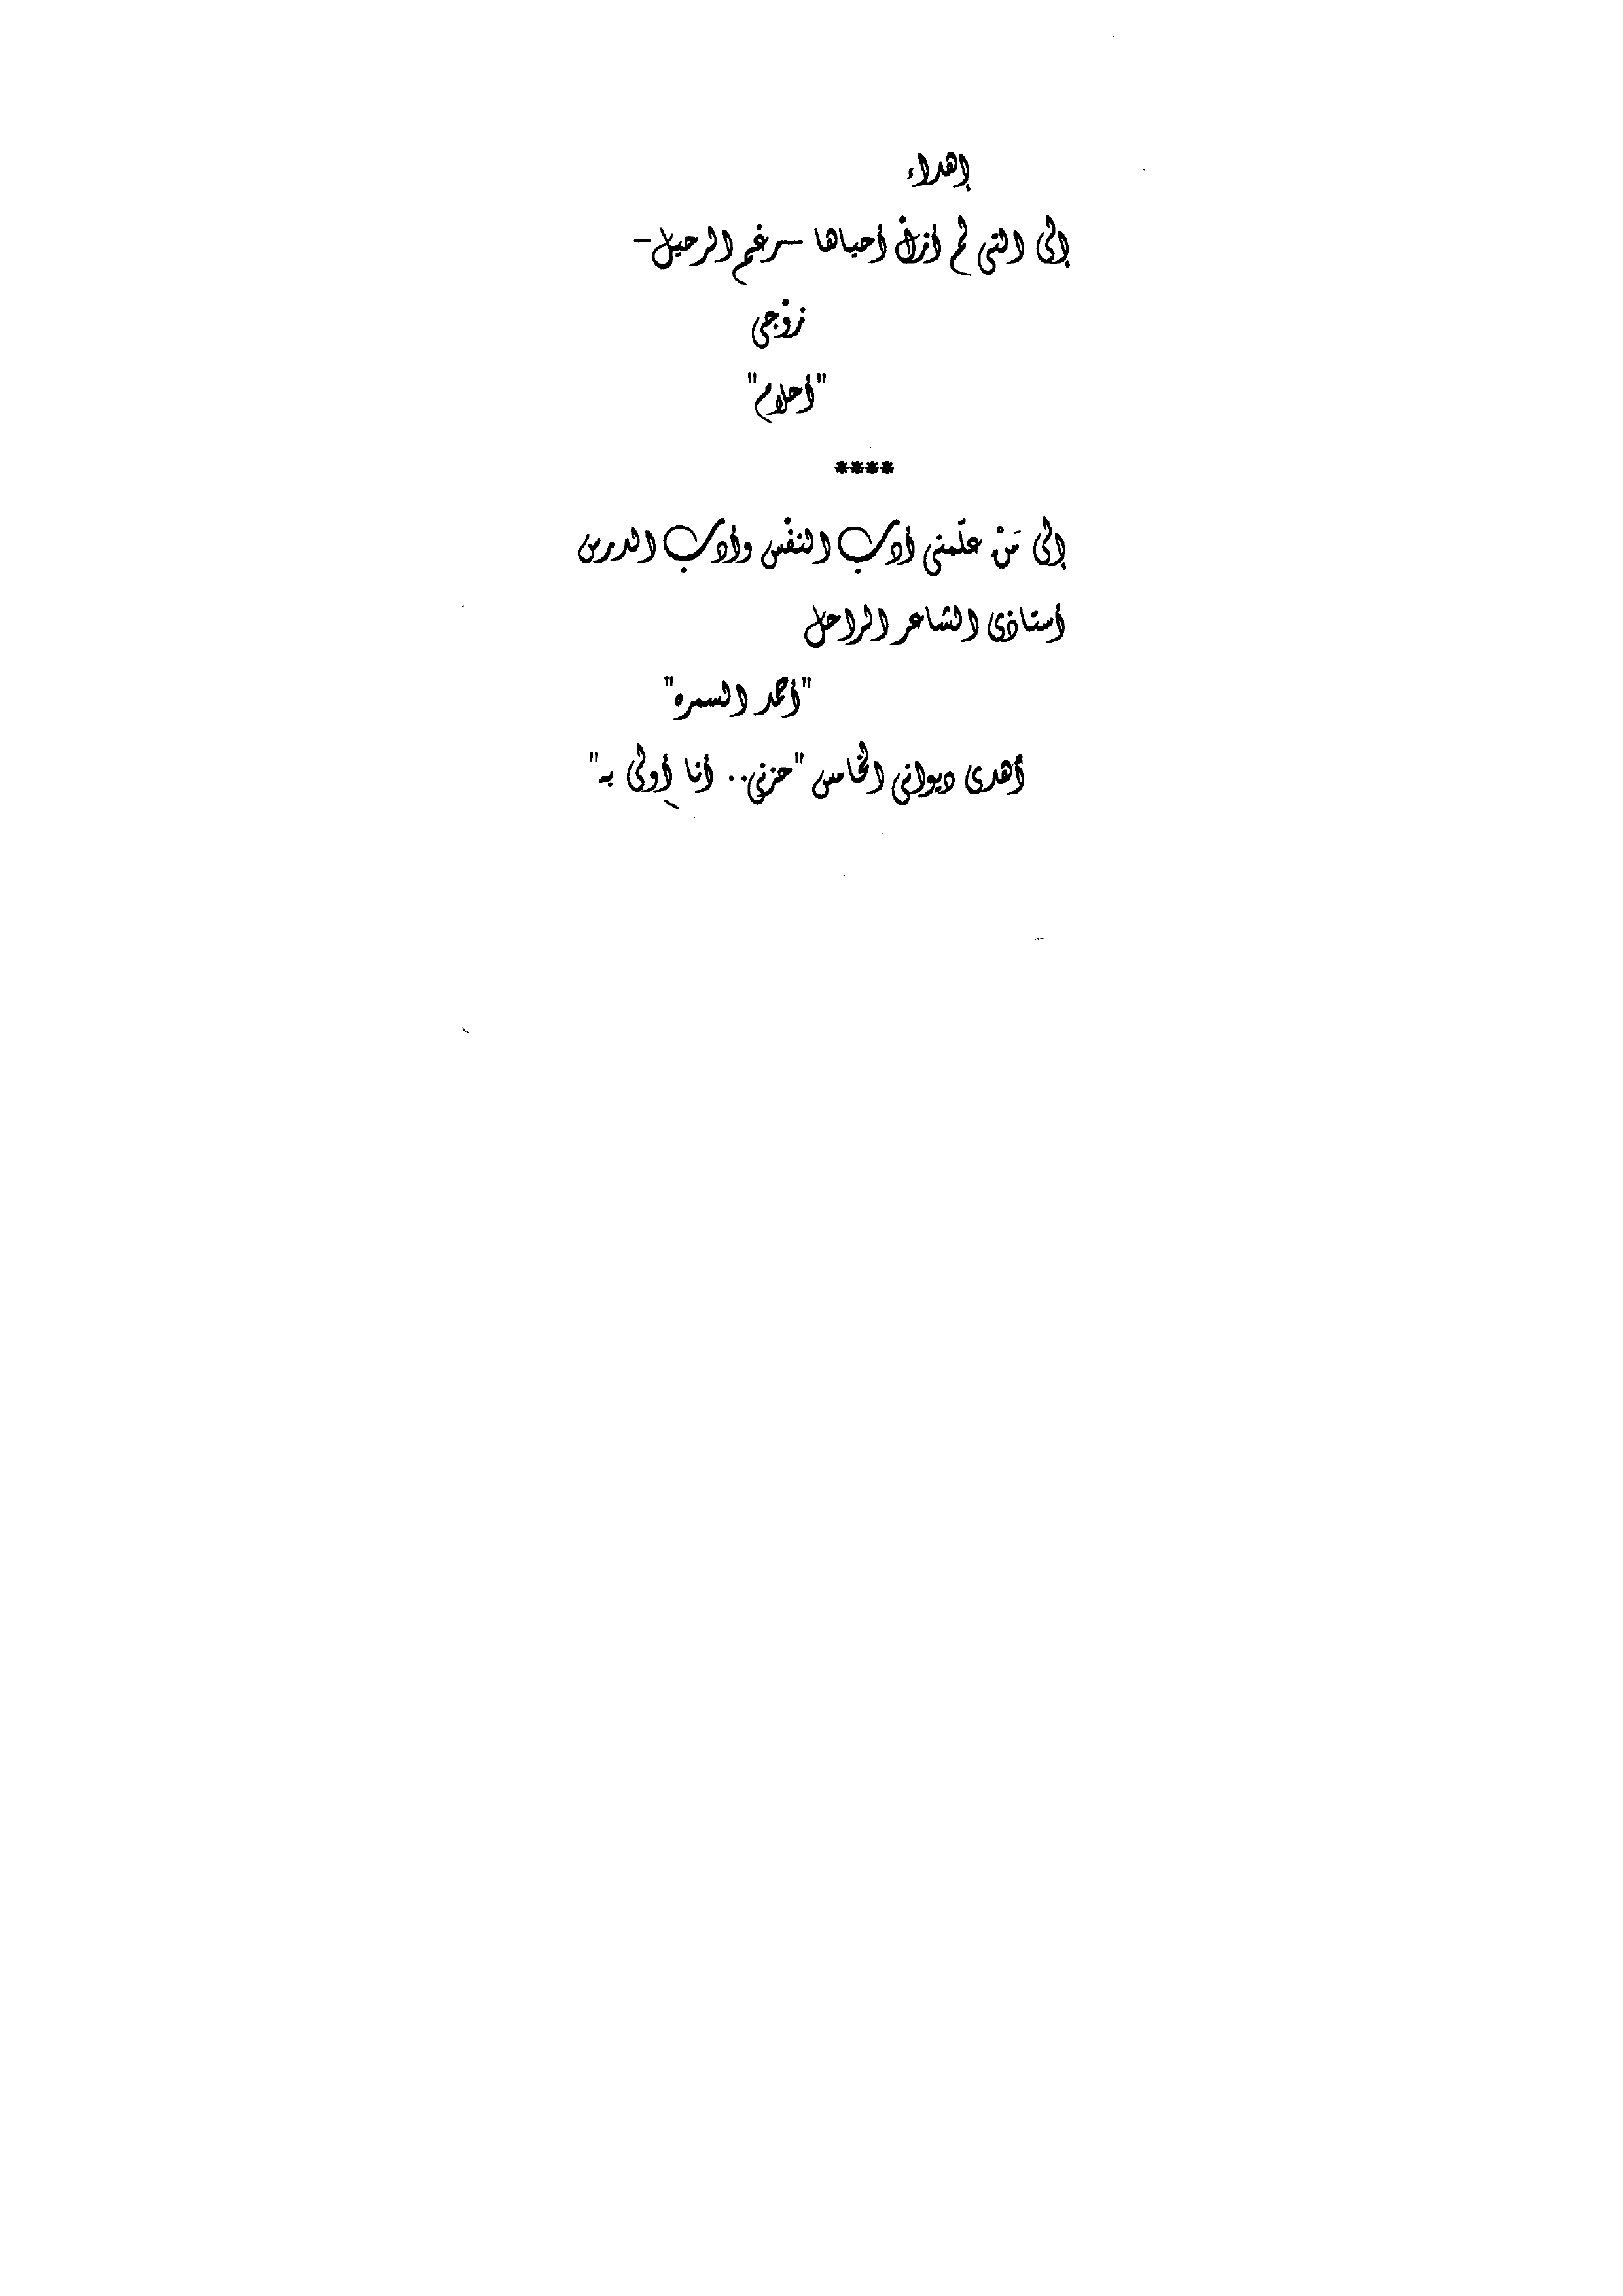 إهداء
إلى التى لم أزل أحياها –رغم الرحيل–
زوْجى
"أحلام"
****
إلى مَنْ علّمنى أدب النفْس وأدب الدرس
أستاذى الشاعر الراحل
"أحمد السمره"
أهدى ديوانى الخامس "حزنى.. أنا أولى به"